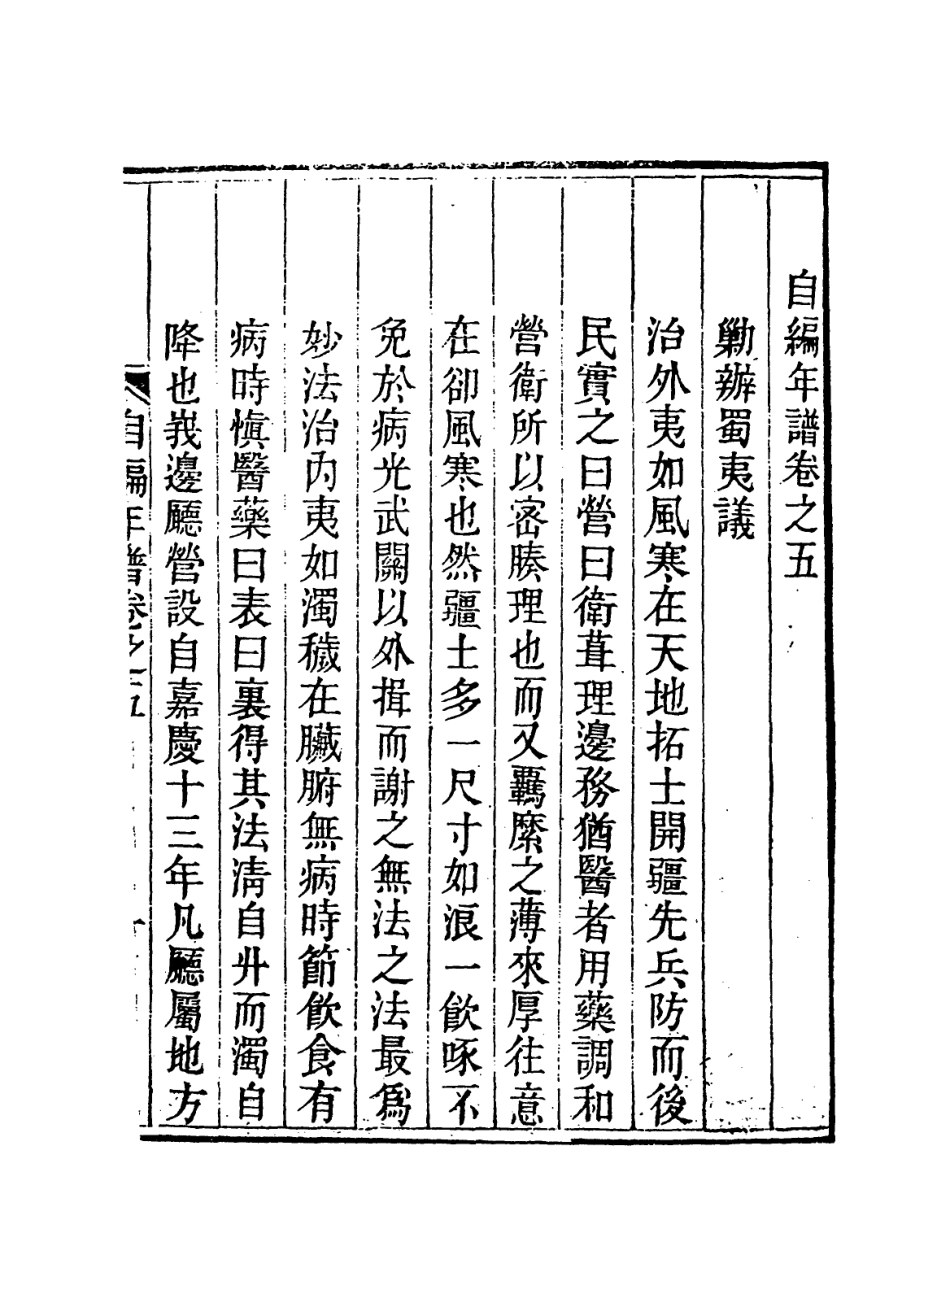 自編年譜卷之五
勦辦蜀夷議
治外夷如風寒在天地拓土開疆先兵防而後
民實之曰營曰衛葺理邊務猶醫者用藥調和
營衛所以密腠理也而又羈縻之薄來厚往意
在卻風寒也然疆土多一尺寸如浪一飲啄不
免於病光武關以外揖而謝之無法之法最爲
妙法治內夷如濁穢在臟腑無病時節飲食有
病時愼醫藥曰表曰裏得其法淸自升而濁自
降也峩邊廳營設自嘉慶十三年凡廳屬地方
自編年譜卷之五